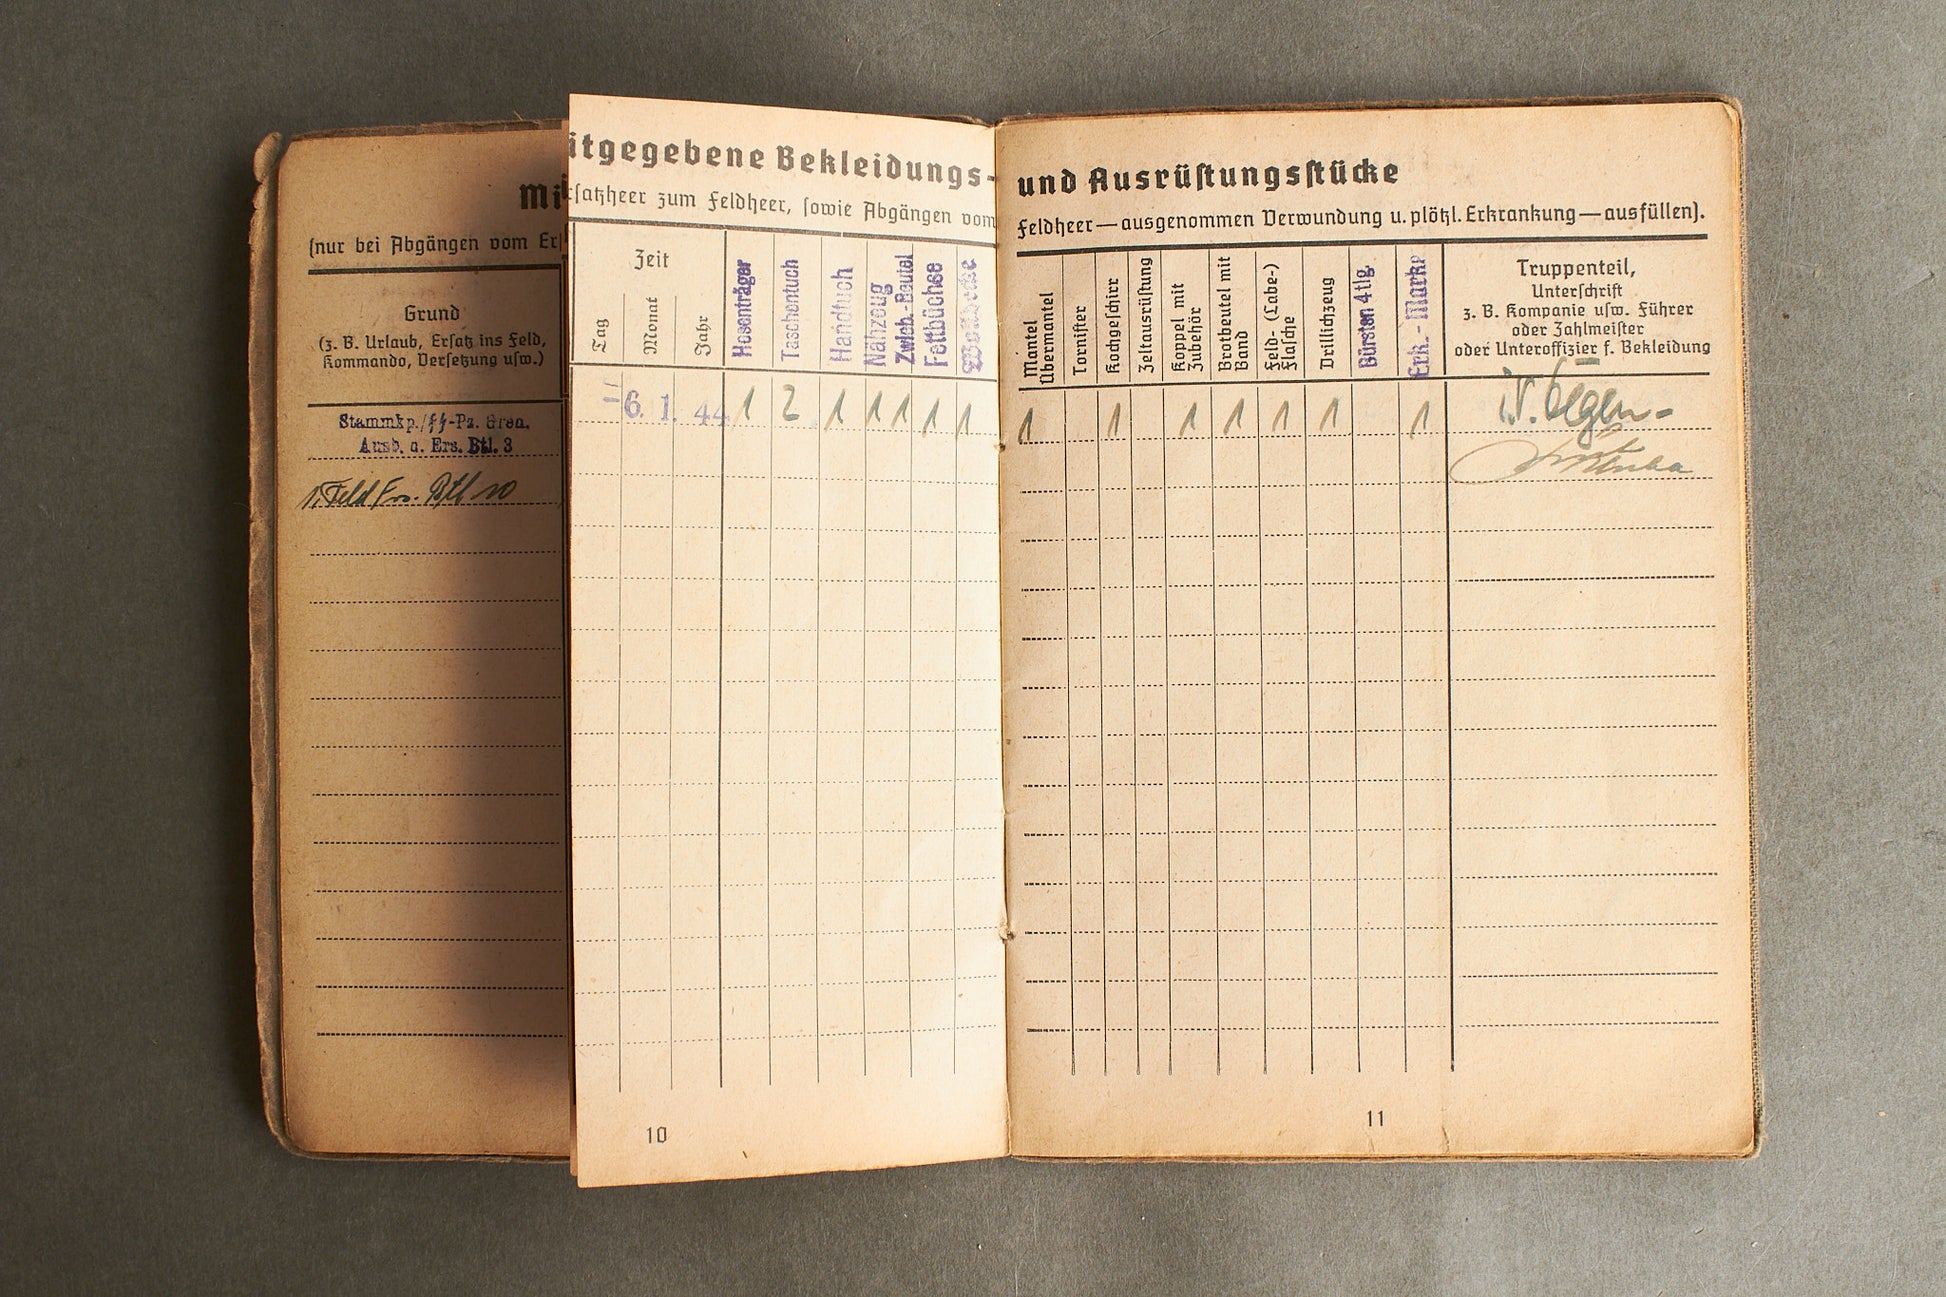 Mi
(nur bei Abgängen vom Er
Grund
(z. B. Urlaub, Ersatz ins Feld,
Kommando, Versetzung usw.)
Stammkp./SS-Pz. Gren.
Ausb. u. Ers. Btl. 3
1. Feld Ers. Btl. 10
itgegebene Bekleidungs-
satzheer zum Feldheer, sowie Abgängen vom
Zeit
Tag
Monat
Jahr
Hosenträger
Taschentuch
Handtuch
Nähzeug
Zwieb.-Beutel
Fettbüchse
Wolldecke
6. 1. 44 1 2 1 1 1 1 1
10
und Ausrüstungsstücke
Feldheer — ausgenommen Verwundung u. plötzl. Erkrankung — ausfüllen).
Mantel
Übermantel
Tornister
Kochgeschirr
Zeltausrüstung
Koppel mit
Zubehör
Brotbeutel mit
Band
Feld- (Labe-)
Flasche
Drillichzeug
Bürsten 4tlg.
Erk.-Marke
Truppenteil,
Unterschrift
z. B. Kompanie usw. Führer
oder Zahlmeister
oder Unteroffizier f. Bekleidung
1 1 1 1 1 1 1
11